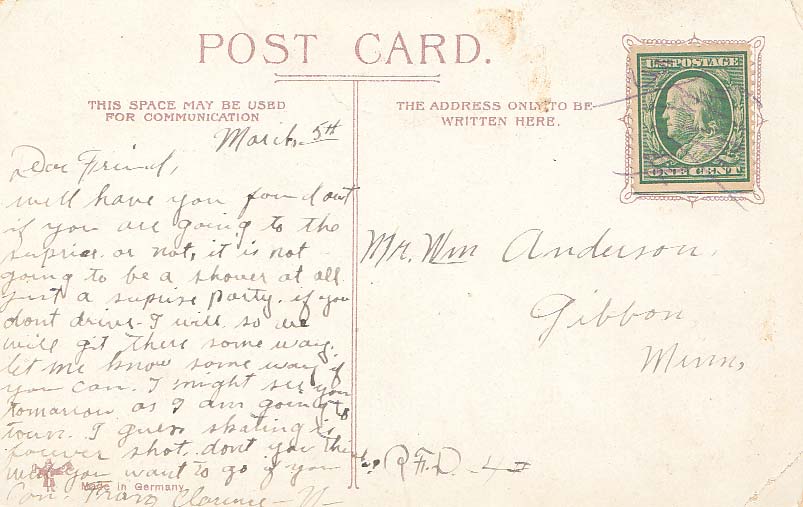 POST CARD.
THIS SPACE MAY BE USED
FOR COMMUNICATION
THE ADDRESS ONLY TO BE
WRITTEN HERE.
U.S. POSTAGE
ONE CENT
March, 5th
Dear Friend,
well have you found out
if you are going to the
suprise or not, it is not
going to be a shower at all
just a suprise party. if you
dont drive I will so we
will git there some way.
let me know some way if
you can. I might see you
tomarrow as I am going to
town. I guess skating is
forever shot. dont you think
well you want to go if you
Can. From Clarence
Mr. Wm Anderson,
Gibbon,
Minn,
R.F.D. 4
Made in Germany